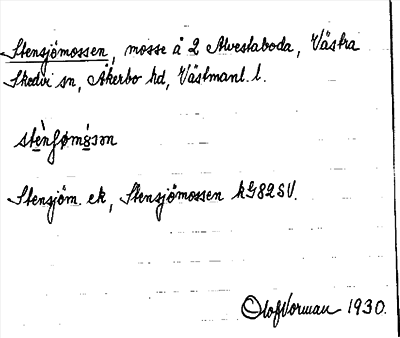 Stensjömossen, mosse å 2 Alvestaboda, Västra
Skedvi sn, Åkerbo hd, Västmanl. l.
stènʃømò̤sən
Stensjöm. ek, Stensjömossen hG82SV.
Olof Vorman 1930.